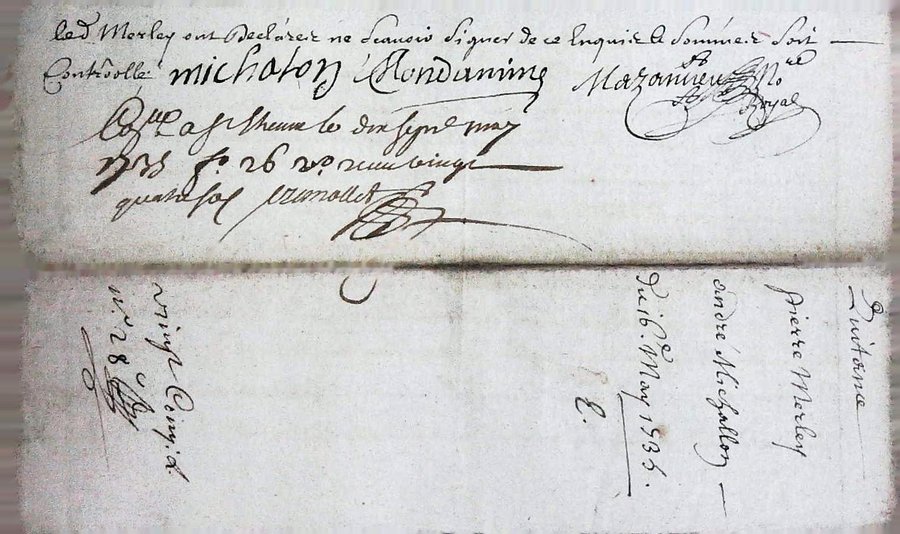 led. Merley ont Declarez ne scavoir signer de ce Enquis & sommez soit
Controllé michalon Mondanime Mazanieu No.re
Royal
Con.lle a St
1735 fo. 26 vo. recu vingt
quatre sol
Quitance
pierre Merley
andré Michallon
du 16.e May 1735.
vingt Cinq.
n.o 28